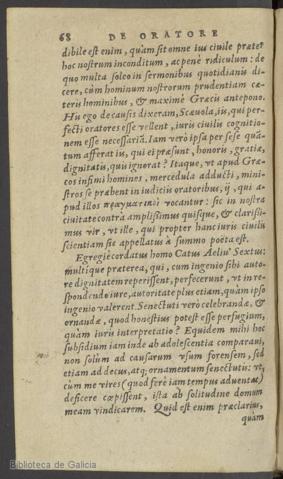 68 DE ORATORE
dibile est enim, quàm sit omne ius ciuile præter
hoc nostrum inconditum, ac penè ridiculum: de
quo multa soleo in sermonibus quotidianis di-
cere, cùm hominum nostrorum prudentiam cæ-
teris hominibus, & maximè Græcis antepono.
Hu ego de causis dixeram, Scæuola, iis, qui per-
fecti oratores esse vellent, iuris ciuilis cognitio-
nem esse necessariã. Iam verò ipsa per sese quã-
tum afferat iis, qui ei præsunt, honoris, gratiæ,
dignitatis, quis ignorat? Itaque, vt apud Græ-
cos infimi homines, mercedula adducti, mini-
stros se præbent in iudiciis oratoribus, ij, qui a-
pud illos πραγματικοὶ vocantur: sic in nostra
ciuitate contrà amplissimus quisque, & clarissi-
mus vir, vt ille, qui propter hanc iuris ciuilis
scientiam sic appellatus à summo poëta est.
Egregiè cordatus homo Catus Aeliu' Sextus:
multique præterea, qui, cum ingenio sibi auto-
re dignitatem reperissent, perfecerunt, vt in re-
spondendo iure, autoritate plus etiam, quàm ipso
ingenio valerent. Senectuti verò celebrandæ, &
ornandæ, quod honestius potest esse perfugium,
quàm iuris interpretatio? Equidem mihi hoc
subsidium iam inde ab adolescentia comparaui,
non solùm ad causarum vsum forensem, sed
etiam ad decus, atq; ornamentum senectutis: vt,
cùm me vires (quod ferè iam tempus aduentat)
deficere cœpissent, ista ab solitudine domum
meam vindicarem. Quid est enim præclarius,
quàm
Biblioteca de Galicia